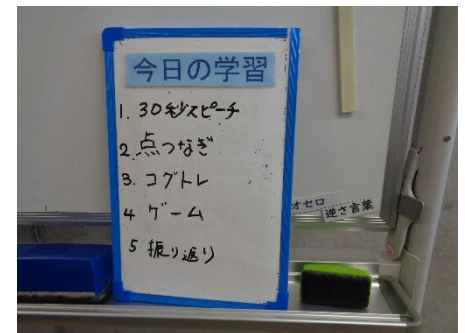 今日の学習
1. 30秒スピーチ
2. 点つなぎ
3. コグトレ
4 ゲーム
5 振り返り
オセロ
逆さ言葉